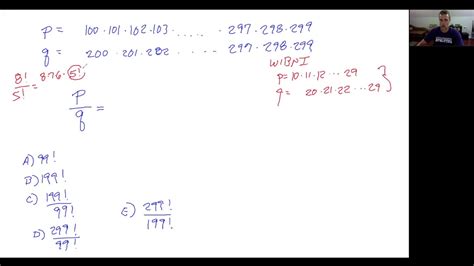 p = 100·101·102·103 ..... 297·298·299
q = 200·201·202 ..... 297·298·299
8!/5! = 876·5!
WIBNI
p=10·11·12 ··· 29
q = 20·21·22 ··· 29
p/q =
A) 99!
B) 199!
C) 199!/99!
D) 299!/99!
E) 299!/199!